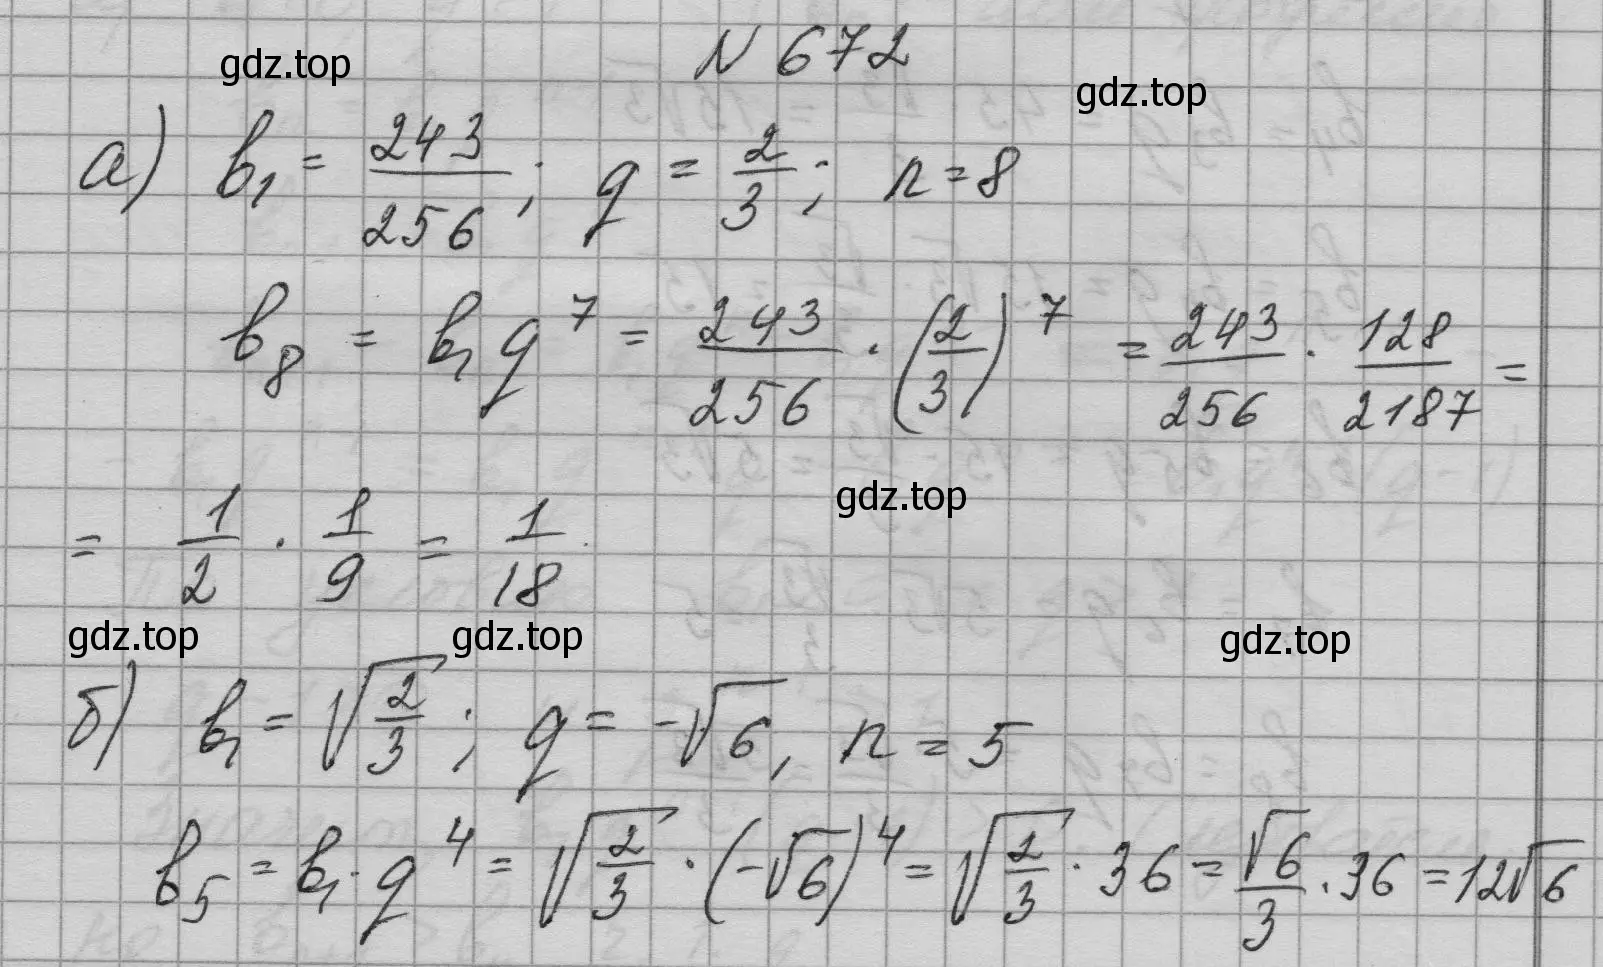 N 672
gdz.top
gdz.top
а) b₁ = 243/256; q = 2/3; n = 8
b₈ = b₁q⁷ = 243/256 · (2/3)⁷ = 243/256 · 128/2187 =
= 1/2 · 1/9 = 1/18
gdz.top
gdz.top
gdz.top
gdz.top
б) b₁ = √(2/3); q = -√6, n = 5
b₅ = b₁ · q⁴ = √(2/3) · (-√6)⁴ = √(2/3) · 36 = √6/3 · 36 = 12√6